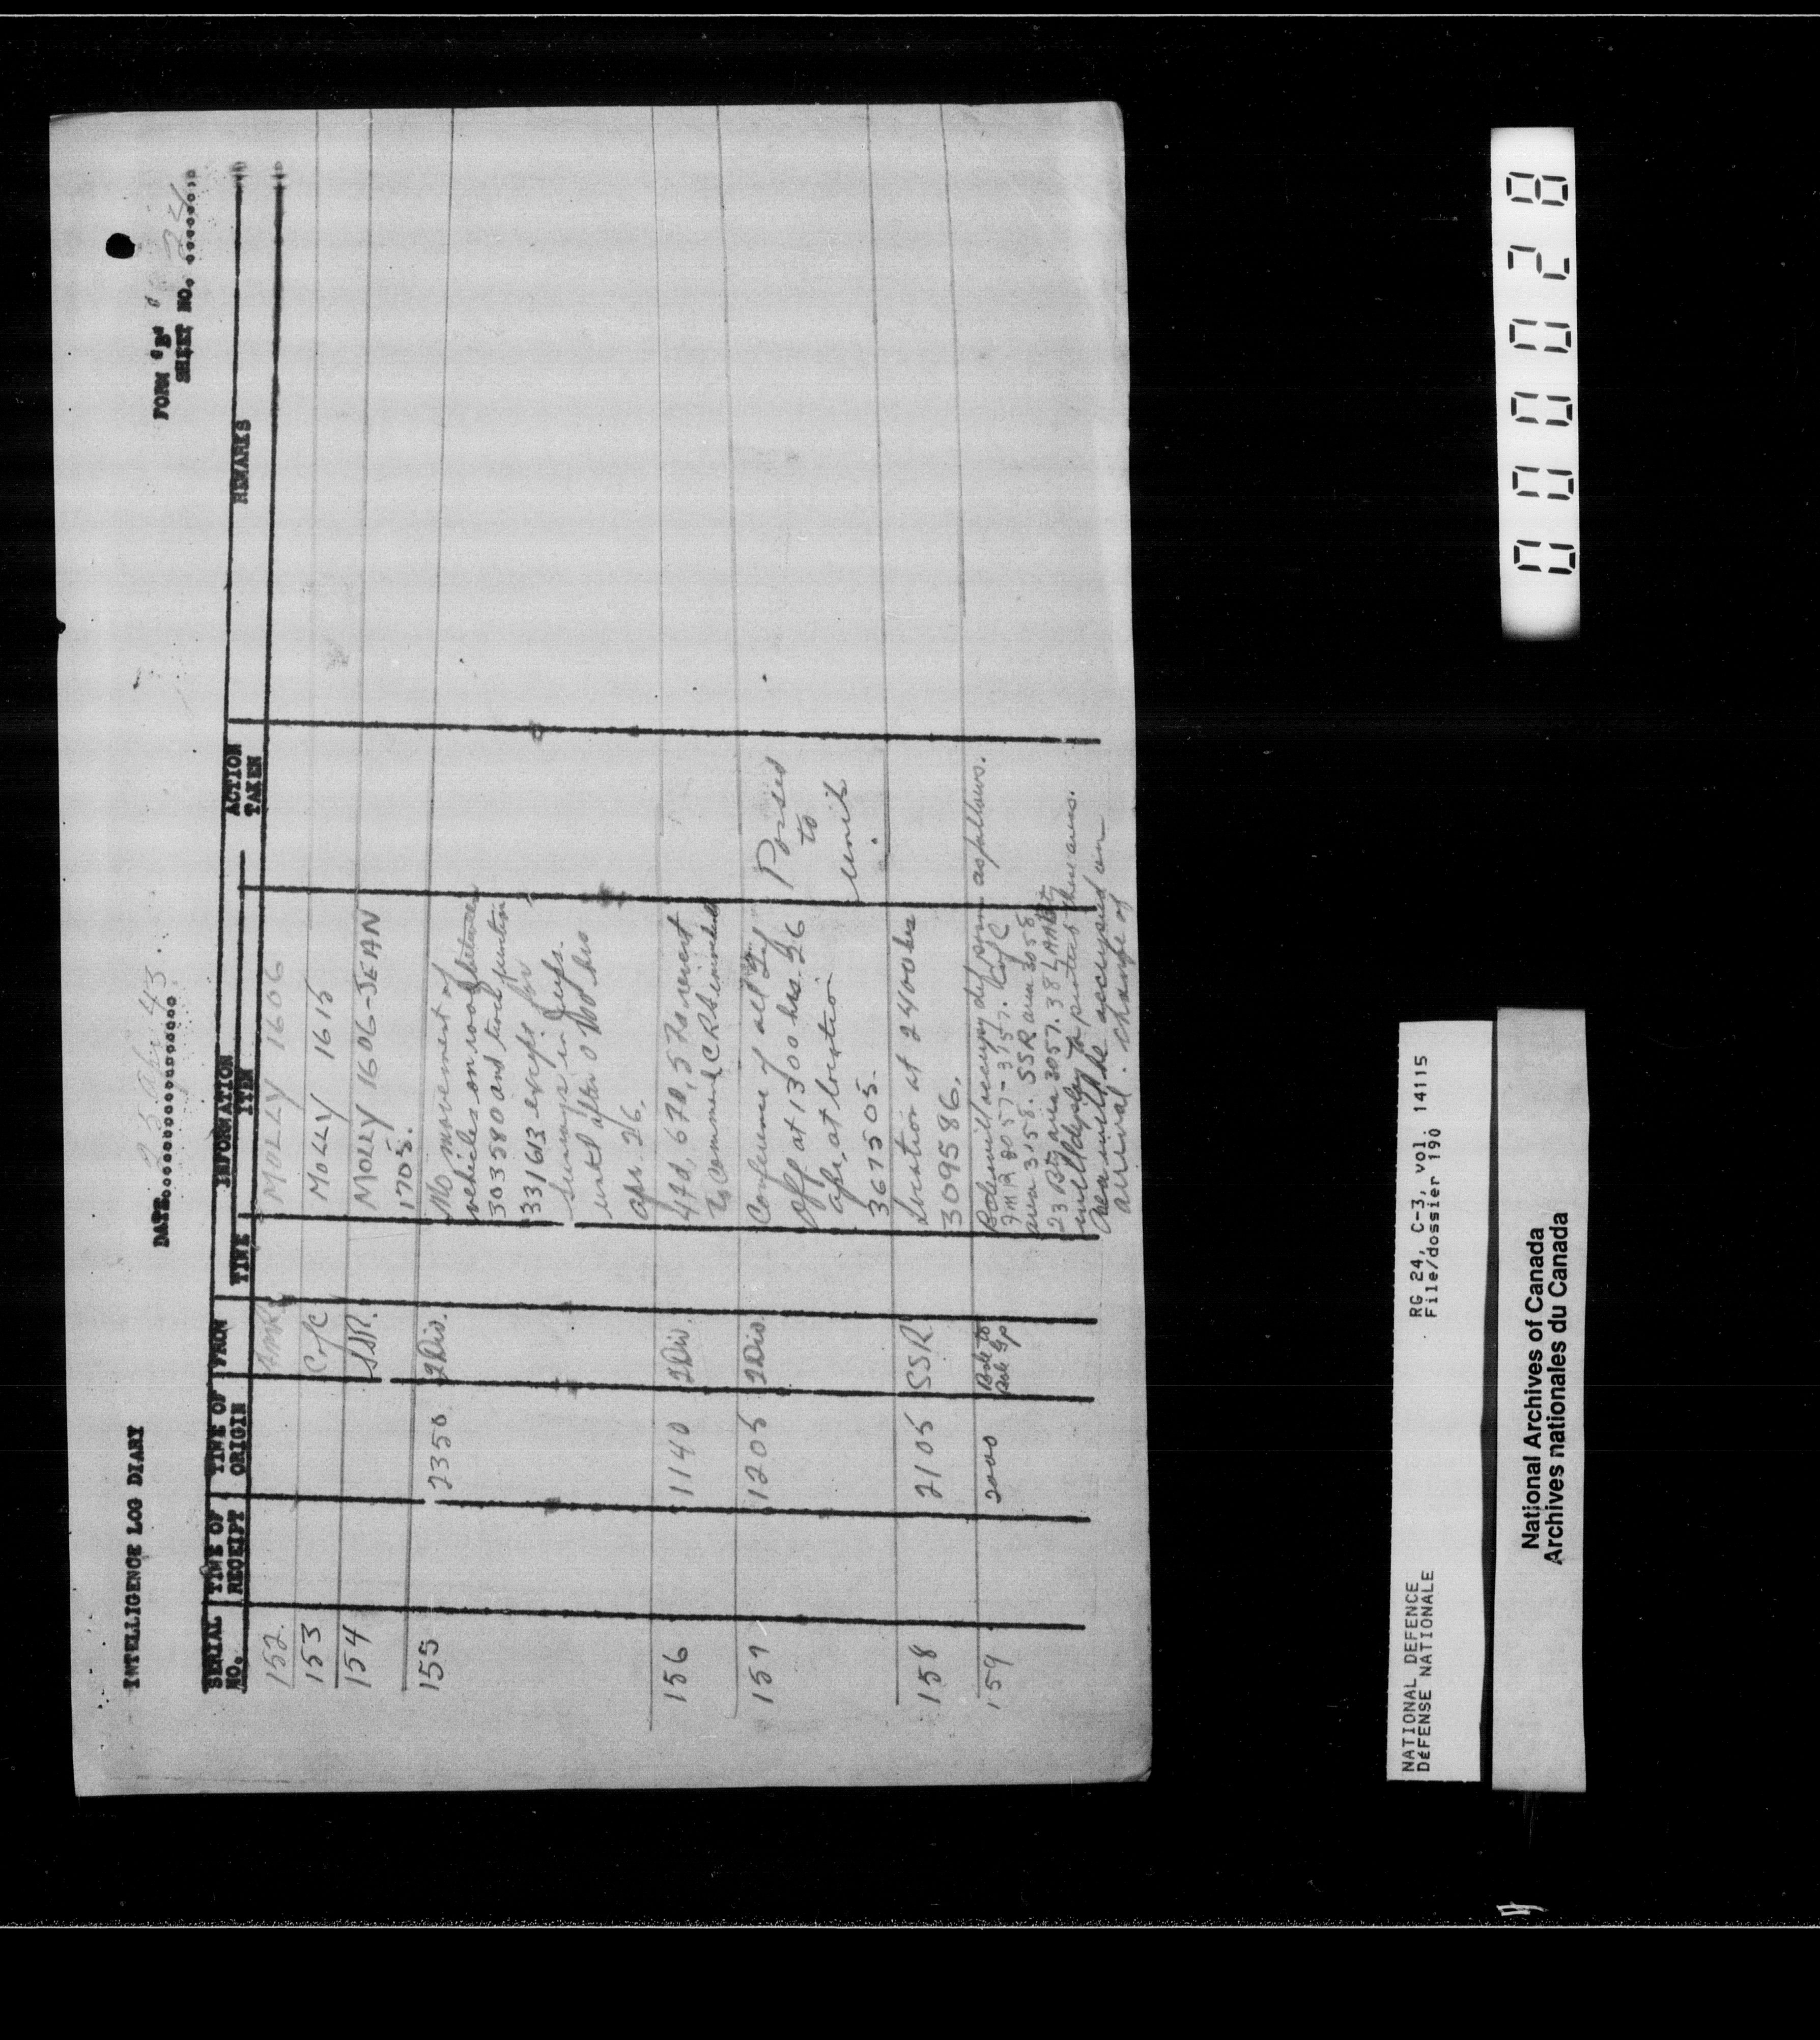 INTELLIGENCE LOG DIARY
FORM "B"
SHEET NO. 24
DATE 25 Apr 43.
SERIAL NO. TIME OF RECEIPT TIME OF ORIGIN FROM TIME INFORMATION ITEM ACTION TAKEN REMARKS
152. MOLLY 1606
153 C of C MOLLY 1615
154 SSR. MOLLY 1606-JEAN
1705.
155 2350 2 Div. No movement of
vehicles on road between
303580 and road junction
331613 except for
surveys in Jeeps
until after 0700 hrs
Apr. 26.
156 1140 2 Div.
157 1205 2 Div. Conference of all
Off at 1300 hrs 26
Apr, at location
367505.
Passed
to
unit
158 2105 SSR Location at 2400 hrs
309586.
159 2000 Bde will occupy as follows.
C of C
area 3158. SSR area 3058
23 Bty area 3057. 38 LAA Bty
will deploy to protect these areas.
Area will be occupied on
arrival. change of
0000028
NATIONAL DEFENCE
DÉFENSE NATIONALE
RG 24, C-3, vol. 14115
File/dossier 190
National Archives of Canada
Archives nationales du Canada